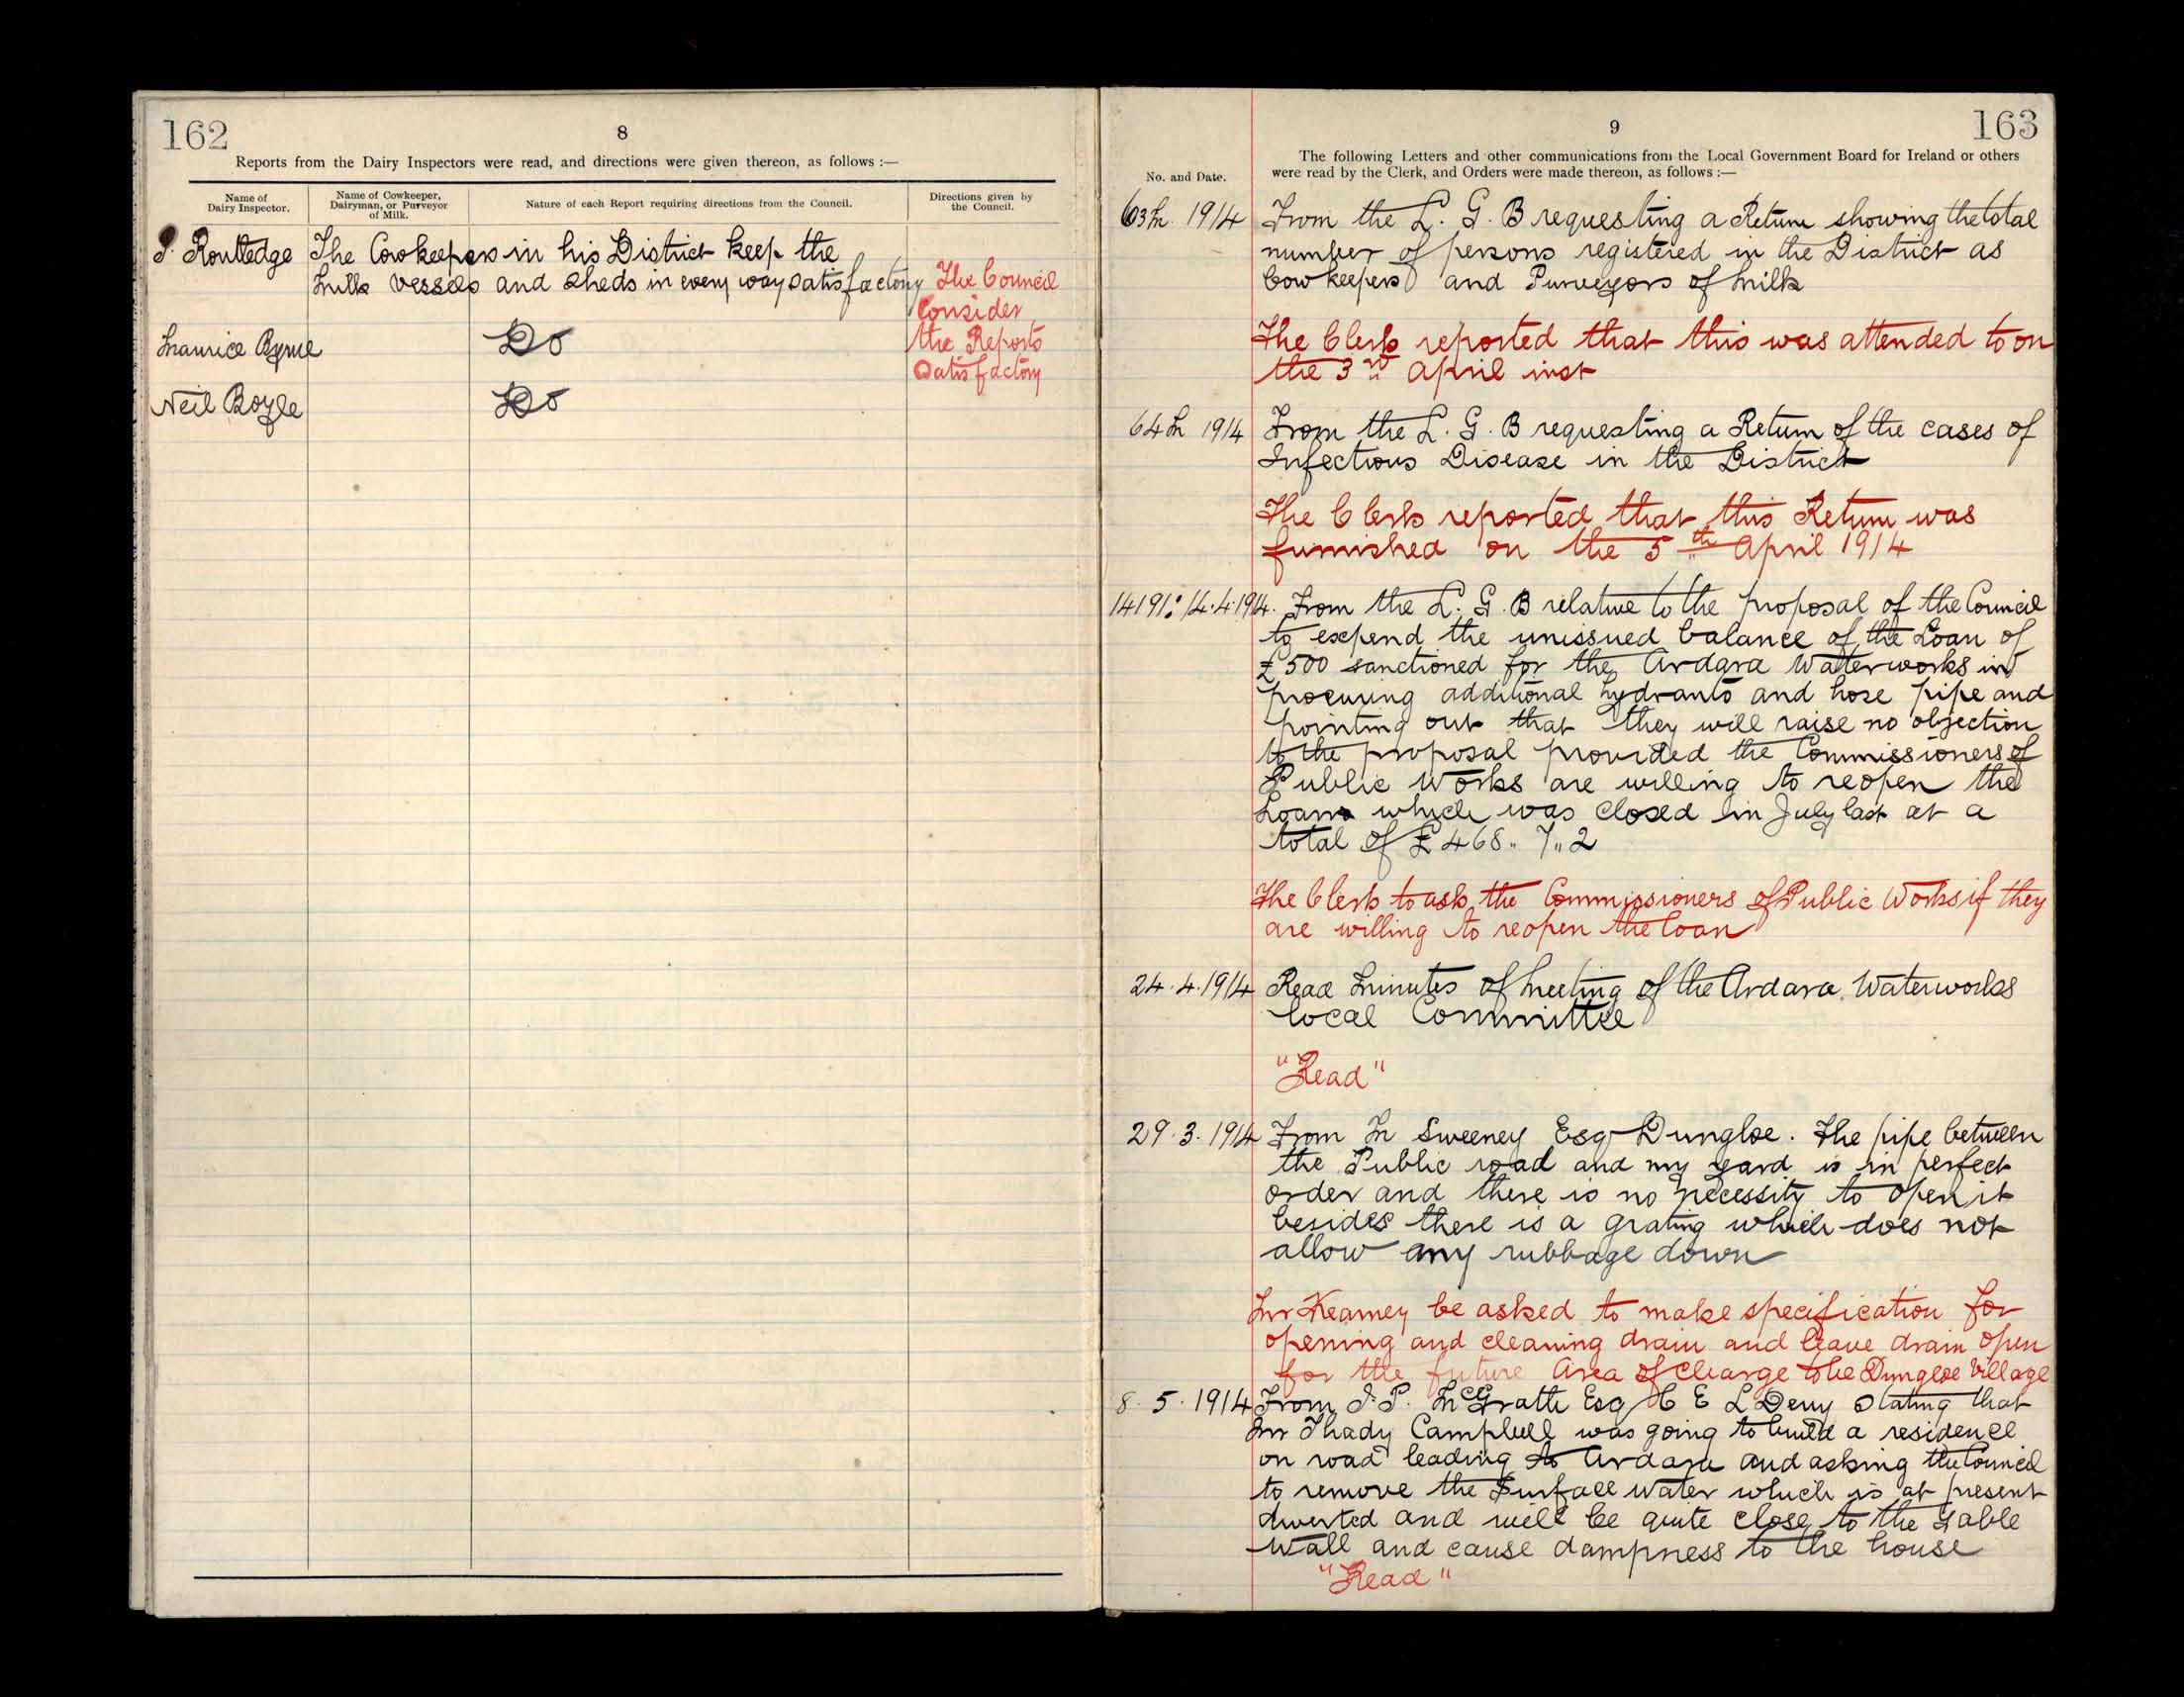 162
8
Reports from the Dairy Inspectors were read, and directions were given thereon, as follows :—
Name of Dairy Inspector.
Name of Cowkeeper, Dairyman, or Purveyor of Milk.
Nature of each Report requiring directions from the Council.
Directions given by the Council.
P. Routledge The Cowkeepers in his District keep the
Milk vessels and sheds in every way satisfactory
The Council
Consider
the Reports
Satisfactory
Maurice Byrne Do
Neil Boyle Do
9
163
The following Letters and other communications from the Local Government Board for Ireland or others
No. and Date. were read by the Clerk, and Orders were made thereon, as follows :—
63M 1914 From the L. G. B requesting a Return showing the total
number of persons registered in the District as
Cowkeepers and Purveyors of Milk
The Clerk reported that this was attended to on
the 3rd April inst
64M 1914 From the L. G. B requesting a Return of the cases of
Infectious Disease in the District
The Clerk reported that this Return was
furnished on the 5th April 1914
14191: 14.4.1914. From the L. G. B relative to the proposal of the Council
to expend the unissued balance of the Loan of
£500 sanctioned for the Ardara Waterworks in
procuring additional hydrants and hose pipe and
pointing out that they will raise no objection
to the proposal provided the Commissioners of
Public Works are willing to reopen the
Loan which was closed in July last at a
total of £468.. 7.. 2
The Clerk to ask the Commissioners of Public Works if they
are willing to reopen the loan
24.4.1914 Read Minutes of Meeting of the Ardara Waterworks
local Committee
"Read"
29.3.1914 From M Sweeney Esq Dungloe. The pipe between
the Public road and my yard is in perfect
order and there is no necessity to open it
besides there is a grating which does not
allow any rubbage down
Mr Kearney be asked to make specification for
opening and cleaning drain and leave drain open
for the future Area of Charge to be Dungloe Village
8.5.1914 From J.P. McGrath Esq C E L Derry Stating that
Mr Thady Campbell was going to build a residence
on road leading to Ardara and asking the Council
to remove the Surface water which is at present
diverted and will be quite close to the gable
wall and cause dampness to the house
"Read"